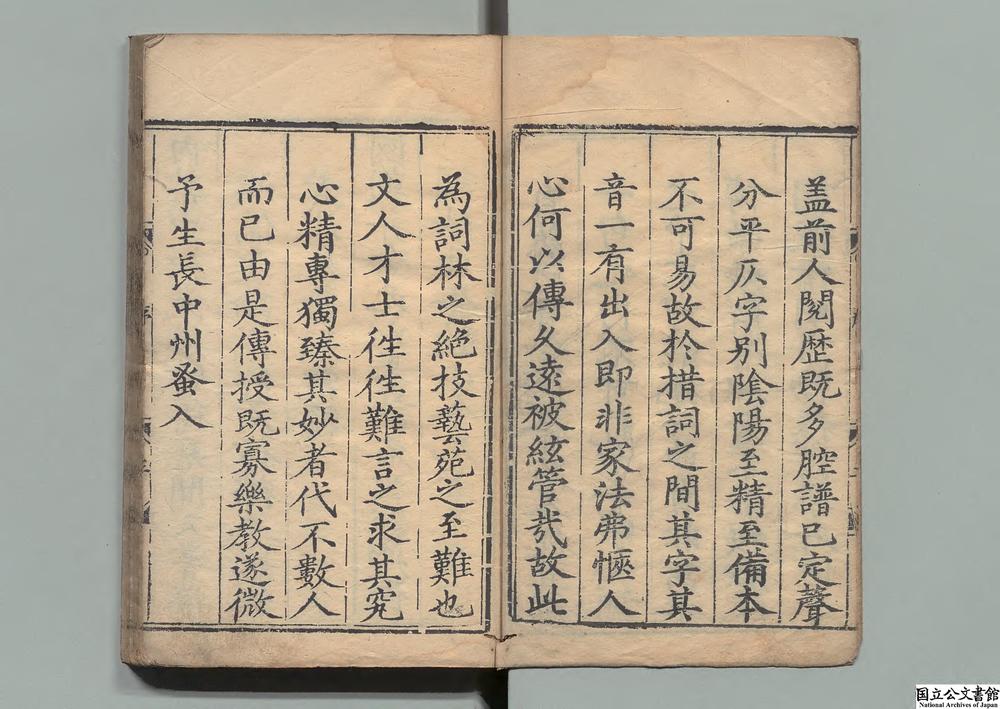 盖前人閱歷既多腔譜已定聲
分平仄字別陰陽至精至備本
不可易故於措詞之間其字其
音一有出入即非家法弗愜人
心何以傳久遠被絃管㦲故此
為詞林之絶技藝苑之至難也
文人才士徃徃難言之求其究
心精專獨臻其妙者代不數人
而已由是傳授既寡樂教遂微
予生長中州蚤入
国立公文書館
National Archives of Japan